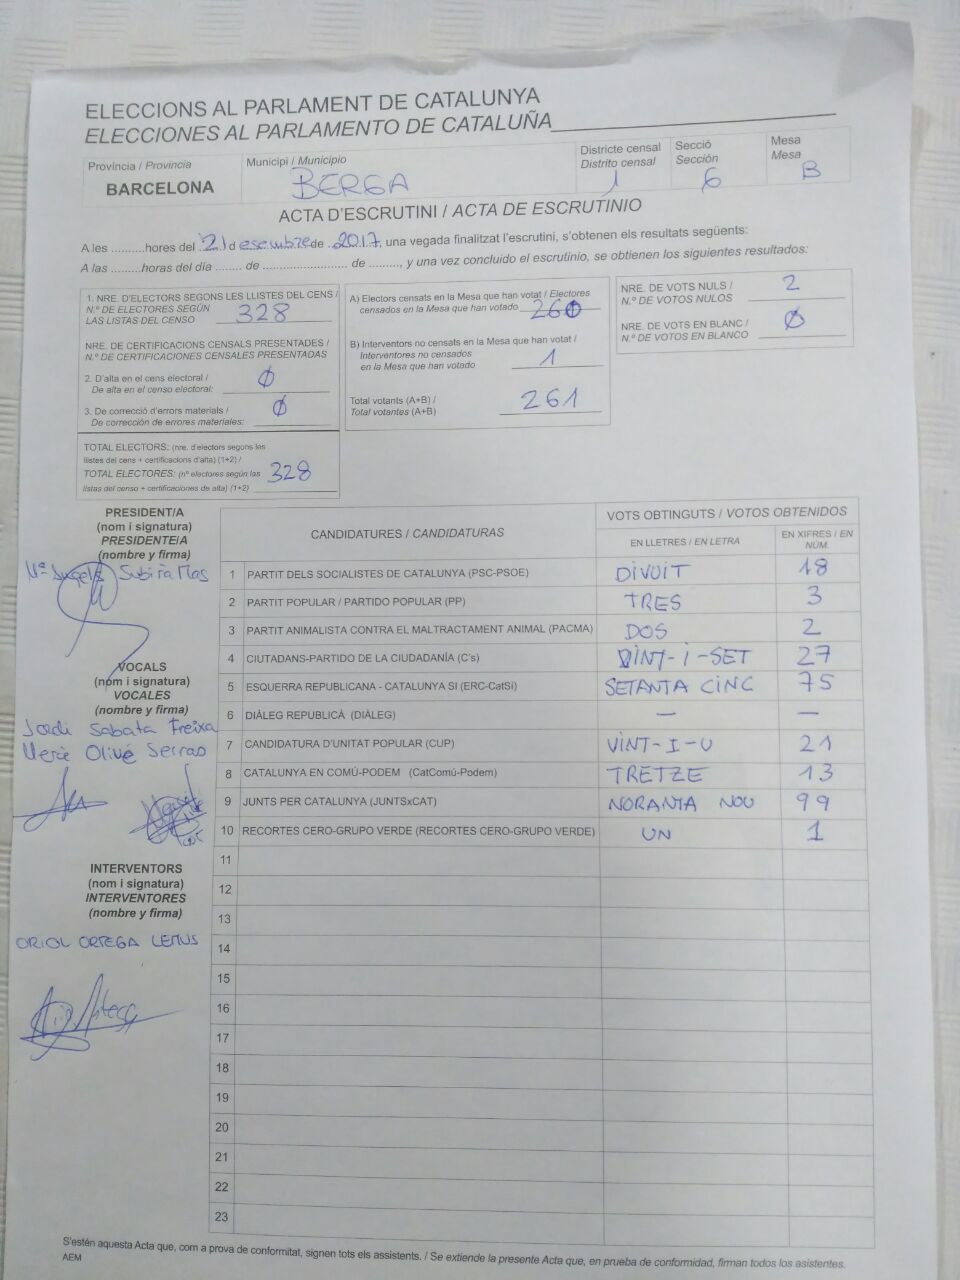 ELECCIONS AL PARLAMENT DE CATALUNYA
ELECCIONES AL PARLAMENTO DE CATALUÑA
Província / Provincia
BARCELONA
Municipi / Municipio
BERGA
Districte censal
Distrito censal
1
Secció
Sección
6
Mesa
Mesa
B
ACTA D'ESCRUTINI / ACTA DE ESCRUTINIO
A les ..........hores del 21 desembre de 2017, una vegada finalitzat l'escrutini, s'obtenen els resultats següents:
A las .........horas del día ....... de ......................... de ........., y una vez concluido el escrutinio, se obtienen los siguientes resultados:
1. NRE. D'ELECTORS SEGONS LES LLISTES DEL CENS /
N.º DE ELECTORES SEGÚN
LAS LISTAS DEL CENSO 328
NRE. DE CERTIFICACIONS CENSALS PRESENTADES /
N.º DE CERTIFICACIONES CENSALES PRESENTADAS
2. D'alta en el cens electoral /
De alta en el censo electoral: Ø
3. De correcció d'errors materials /
De corrección de errores materiales: Ø
TOTAL ELECTORS: (nre. d'electors segons les
llistes del cens + certificacions d'alta) (1+2) /
TOTAL ELECTORES: (nº electores según las
listas del censo + certificaciones de alta) (1+2) 328
A) Electors censats en la Mesa que han votat / Electores
censados en la Mesa que han votado 260
B) Interventors no censats en la Mesa que han votat /
Interventores no censados
en la Mesa que han votado 1
Total votants (A+B) /
Total votantes (A+B) 261
NRE. DE VOTS NULS /
N.º DE VOTOS NULOS 2
NRE. DE VOTS EN BLANC /
N.º DE VOTOS EN BLANCO Ø
PRESIDENT/A
(nom i signatura)
PRESIDENTE/A
(nombre y firma)
Mª Àngels Subirà Mas
VOCALS
(nom i signatura)
VOCALES
(nombre y firma)
Jordi Sabata Freixa
Mercè Olivé Serras
INTERVENTORS
(nom i signatura)
INTERVENTORES
(nombre y firma)
ORIOL ORTEGA LEMUS
CANDIDATURES / CANDIDATURAS
VOTS OBTINGUTS / VOTOS OBTENIDOS
EN LLETRES / EN LETRA
EN XIFRES / EN NÚM.
1 PARTIT DELS SOCIALISTES DE CATALUNYA (PSC-PSOE) DIVUIT 18
2 PARTIT POPULAR / PARTIDO POPULAR (PP) TRES 3
3 PARTIT ANIMALISTA CONTRA EL MALTRACTAMENT ANIMAL (PACMA) DOS 2
4 CIUTADANS-PARTIDO DE LA CIUDADANÍA (C's) VINT-I-SET 27
5 ESQUERRA REPUBLICANA - CATALUNYA SI (ERC-CatSí) SETANTA CINC 75
6 DIÀLEG REPUBLICÀ (DIÀLEG) — —
7 CANDIDATURA D'UNITAT POPULAR (CUP) VINT-I-U 21
8 CATALUNYA EN COMÚ-PODEM (CatComú-Podem) TRETZE 13
9 JUNTS PER CATALUNYA (JUNTSxCAT) NORANTA NOU 99
10 RECORTES CERO-GRUPO VERDE (RECORTES CERO-GRUPO VERDE) UN 1
11
12
13
14
15
16
17
18
19
20
21
22
23
S'estén aquesta Acta que, com a prova de conformitat, signen tots els assistents. / Se extiende la presente Acta que, en prueba de conformidad, firman todos los asistentes.
AEM